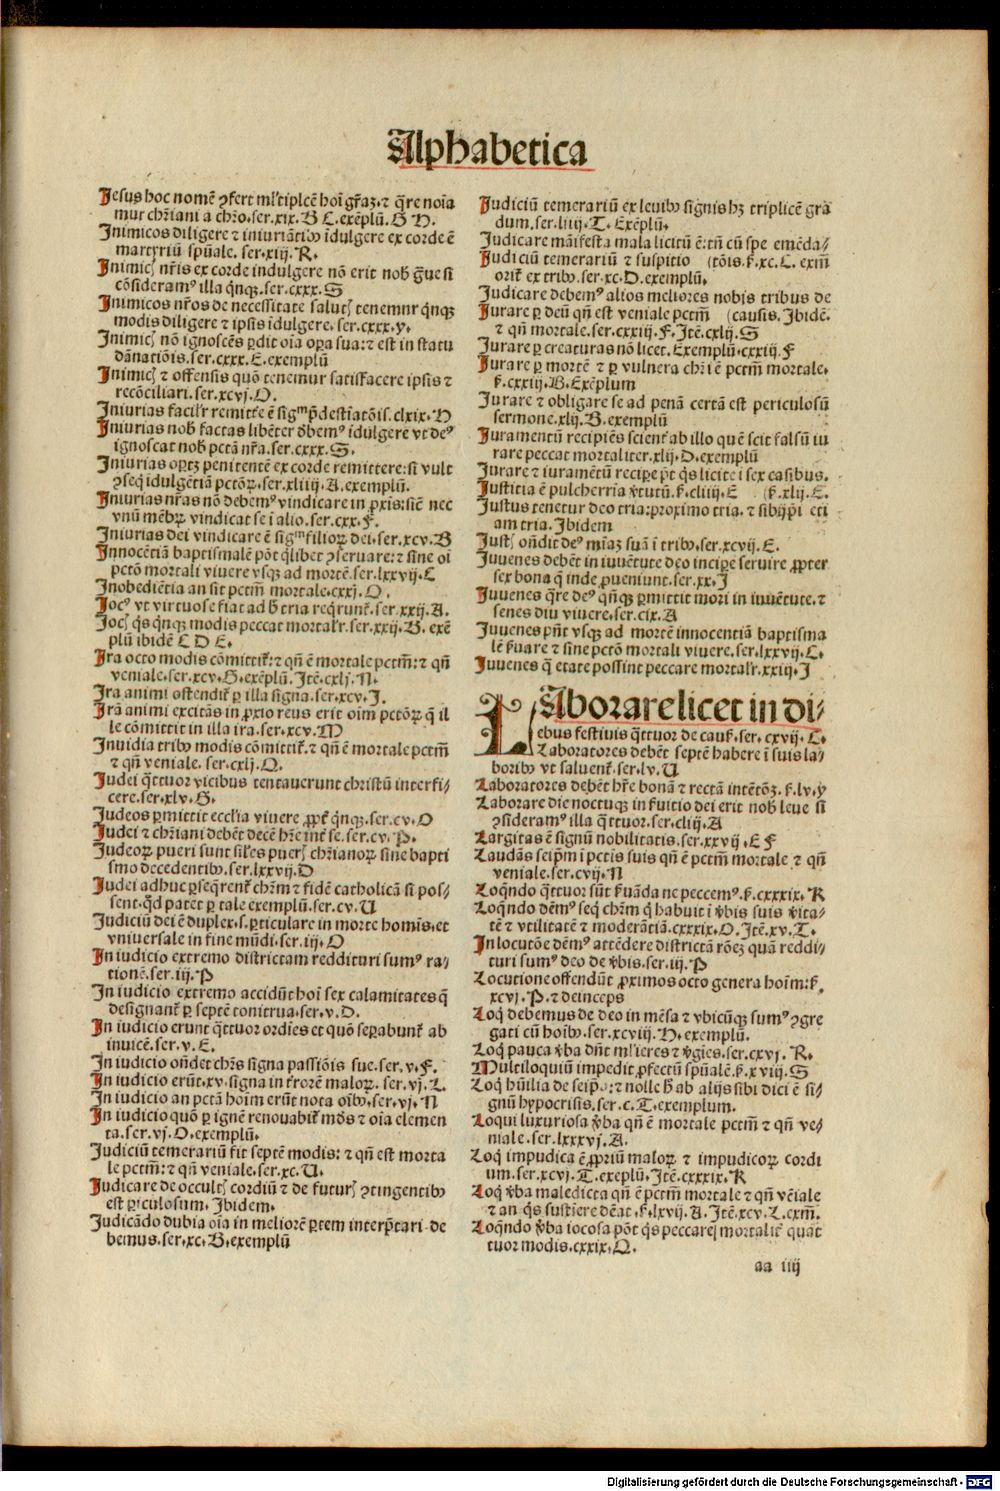 Alphabetica
Jesus hoc nomē ꝯfert ml'tiplicē hoī gr̄aꝫ. ⁊ q̄re noīa
mur chr̄iani a chr̄o. ser. xix. B C. exēplū. G H.
Inimicos diligere ⁊ iniuriātibꝰ īdulgere ex corde ē
martyriū spūale. ser. xiij. R.
Inimicꝭ nr̄is ex corde indulgere nō erit nob̄ graue si
cōsideramꝰ illa qnqꝫ. ser. cxxx. S
Inimicos nr̄os de necessitate salutꝭ tenemur qnqꝫ
modis diligere ⁊ ipsis īdulgere. ser. cxxx. y.
Inimicꝭ nō ignoscēs ꝑdit oīa oꝑa sua: ⁊ est in statu
dānatiōis. ser. cxxx. E. exemplū
Inimicꝭ ⁊ offensis quō tenemur satisfacere ipsis ⁊
recōciliari. ser. xcvj. O.
Iniurias facil'r remitte ē sigᵐ p̄destiatōis. clxix. H
Iniurias nob̄ factas libēter dēbemꝰ īdulgere vt deꝰ
ignoscat nob̄ pctā nr̄a. ser. cxxx. S.
Iniurias oꝑtꝫ penitentē ex corde remittere: si vult
ꝯseq īdulgētiā pctōꝝ. ser. xliiij. A. exemplū.
Iniurias nr̄as nō debemꝰ vindicare in ꝓxīs: sic nec
vnū mēbꝝ vindicat se ī alio. ser. cxx. F.
Iniurias dei vindicare ē sigᵐ filioꝝ dei. ser. xcv. B
Innocētiā baptismalē pōt qlibet ꝯseruare: ⁊ sine oī
pctō mortali viuere vsqꝫ ad mortē. ser. lxxvij. C
Inobediētia an sit pctm̄ mortale. cxxj. O.
Jocꝰ vt virtuose fiat ad h̄ tria reqrunt̄. ser. xxij. A.
Jocꝭ qs qnqꝫ modis peccat mortal'r. ser. xxij. B. exē
plū ibidē C D E.
Ira octo modis cōmittit̄: ⁊ qn̄ ē mortale pctm̄: ⁊ qn̄
veniale. ser. xcv. G. exēplū. Itē. cxlj. N.
Ira animi ostendit̄ ꝑ illa signa. ser. xcv. J.
Irā animi excitās in ꝓxīo reus erit oīm pctōꝝ q̄ il
le cōmittit in illa ira. ser. xcv. M
Inuidia tribꝰ modis cōmittit̄. ⁊ qn̄ ē mortale pctm̄
⁊ qn̄ veniale. ser. cxlj. Q.
Judei q̄ttuor vicibus tentauerunt christū interfi⸗
cere. ser. xlv. G.
Judeos ꝑmittit eccl'ia viuere ꝓpt̄ qnqꝫ. ser. cv. O
Judei ⁊ chr̄iani debēt decē hr̄e int̄ se. ser. cv. P.
Judeoꝝ pueri sunt sil'es puerꝭ chr̄ianoꝝ sine bapti
smo decedentibꝰ. ser. lxxvij. D
Judei adhuc ꝑseq̄rent̄ chr̄m ⁊ fidē catholicā si pos⸗
sent. qd patet ꝑ tale exemplū. ser. cv. U
Judiciū dei ē duplex. s. ꝑticulare in morte homīs. et
vniuersale in fine mūdi. ser. iij. O
In iudicio extremo districtam reddituri sumꝰ ra⸗
tionē. ser. iij. P
In iudicio extremo accidūt hoī sex calamitates q̄
designant̄ ꝑ septē tonitrua. ser. v. D.
In iudicio erunt q̄ttuor ordīes et quō seꝑabunt̄ ab
inuicē. ser. v. E.
In iudicio on̄det chr̄s signa passiōis sue. ser. v. F.
In iudicio erūt. xv. signa in t̄rorē maloꝝ. ser. vj. L.
In iudicio an pctā hoīm erūt nota oībꝰ. ser. vj. N
In iudicio quō ꝑ ignē renouabit̄ mūdꝰ ⁊ oīa elemen
ta. ser. vj. O. exemplū.
Judiciū temerariū fit septē modis: ⁊ qn̄ est morta
le pctm̄: ⁊ qn̄ veniale. ser. xc. U.
Judicare de occultꝭ cordiū ⁊ de futurꝭ ꝯtingentibꝰ
est ꝑiculosum. Ibidem.
Judicādo dubia oīa in meliorē ꝑtem interp̄tari de
bemus. ser. xc. B. exemplū
Judiciū temerariū ex leuibꝰ signis hꝫ triplicē gra
dum. ser. liiij. T. Exēplū.
Judicare māifesta mala licitū ē: tn̄ cū spe emēda⸗
Judiciū temerariū ⁊ suspitio (tōis. ẜ. xc. C. exm̄
orit̄ ex tribꝰ. ser. xc. D. exemplū.
Judicare debemꝰ alios meliores nobis tribus de
Jurare ꝑ deū qn̄ est veniale pctm̄ (causis. Ibidē.
⁊ qn̄ mortale. ser. cxxiij. F. Itē. cxlij. S
Jurare ꝑ creaturas nō licet. Exemplū. cxxiij. F
Jurare ꝑ mortē ⁊ ꝑ vulnera chr̄i ē pctm̄ mortale.
ẜ. cxxiij. B. Exēplum
Jurare ⁊ obligare se ad penā certā est periculosū
sermone. xlij. B. exemplū
Juramentū recipiēs scient̄ ab illo quē scit falsū iu
rare peccat mortaliter. xlij. D. exemplū
Jurare ⁊ iuramētū reciꝑe pt̄ qs licite ī sex casibus.
Justitia ē pulcherria v̄tutū. ẜ. cliiij. E (ẜ. xlij. E.
Justus tenetur deo tria: proximo tria. ⁊ sibijp̄i eti
am tria. Ibidem
Justꝭ on̄dit deꝰ mīaꝫ suā ī tribꝰ. ser. xcvij. E.
Juuenes debēt in iuuētute deo inciꝑe seruire ꝓpter
sex bona q̄ inde ꝓueniunt. ser. xx. J
Juuenes q̄re deꝰ qn̄qꝫ ꝑmittit mori in iuuētute. ⁊
senes diu viuere. ser. cix. A
Juuenes pn̄t vsqꝫ ad mortē innocentiā baptisma
lē ẜuare ⁊ sine pctō mortali viuere. ser. lxxvij. C.
Juuenes q̄ etate possint peccare mortal'r. xxiij. J
LAborare licet in di⸗
ebus festiuis q̄ttuor de cauẜ. ser. cxvij. T.
Laboratores debēt septē habere ī suis la⸗
boribꝰ vt saluent̄. ser. lv. U
Laboratores debēt hr̄e bonā ⁊ rectā intētōꝫ. ẜ. lv. y
Laborare die noctuqꝫ in ẜuitio dei erit nob̄ leue si
ꝯsideramꝰ illa q̄ttuor. ser. cliij. A
Largitas ē signū nobilitatis. ser. xxvij. E F
Laudās seipm̄ ī pctīs suis qn̄ ē pctm̄ mortale ⁊ qn̄
veniale. ser. cvij. N
Loqndo q̄ttuor sūt ẜuāda ne peccemꝰ. ẜ. cxxxix. R
Loqndo dēmꝰ seq chr̄m q habuit ī v̄bis suis v̄ita⸗
tē ⁊ vtilitatē ⁊ moderātiā. cxxxix. O. Itē. xv. T.
In locutōe dēmꝰ attēdere districtā rōeꝫ quā reddi⸗
turi sumꝰ deo de v̄bis. ser. iij. P
Locutione offendūt ꝓximos octo genera hoīm: ẜ.
xcvj. P. ⁊ deinceps
Loq debemus de deo in mēsa ⁊ vbicūqꝫ sumꝰ ꝯgre
gati cū hoībꝰ. ser. xcviij. H. exemplū.
Loq pauca v̄ba dn̄t ml'ieres ⁊ v̄gīes. ser. cxvj. R.
Multiloquiū impedit ꝓfectū spūalē. ẜ. xviij. S
Loq hūilia de seipō: ⁊ nolle h̄ ab alijs sibi dici ē si⸗
gnū hypocrisis. ser. c. T. exemplum.
Loqui luxuriosa v̄ba qn̄ ē mortale pctm̄ ⁊ qn̄ ve⸗
niale. ser. lxxxvj. A.
Loq impudica ē ꝓpriū maloꝝ ⁊ impudicoꝝ cordi
um. ser. xcvj. T. exēplū. Itē. cxxxix. R
Loq v̄ba maledicta qn̄ ē pctm̄ mortale ⁊ qn̄ vēiale
⁊ an qs sustiere dēat. ẜ. lxvij. A. Itē. xcv. L. exm̄.
Loqndo v̄ba iocosa pōt qs peccare mortalit̄ quat
tuor modis. cxxix. Q.
aa iiij
Digitalisierung gefördert durch die Deutsche Forschungsgemeinschaft - DFG